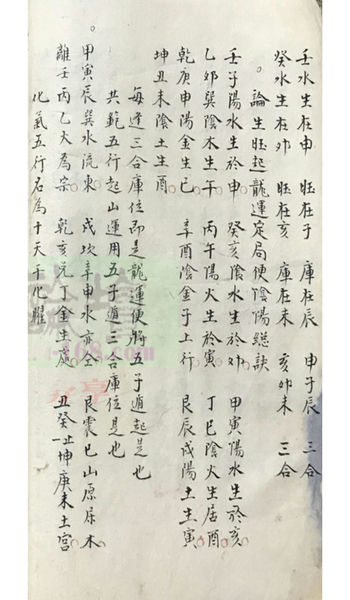 壬水生在申　旺在子　庫在辰　申子辰　三合
癸水生在卯　旺在亥　庫在未　亥卯未　三合
。論生旺起龍運定局便陰陽總訣
壬子陽水生於申　癸亥陰水生於卯　甲寅陽水生於亥
乙卯巽陰木生午　丙午陽火生於寅　丁巳陰火生居酉
乾庚申陽金生巳　辛酉陰金子上行　艮辰戌陽土生寅
坤丑未陰土生酉
每逢三合庫位即是龍運便將五子遁起是也
共範五行起山運用五子遁三合庫位是也
。甲寅辰巽水流東　戌坎辛申水亦仝　艮震巳山原屬木
離壬丙乙火為宗　乾亥兌丁金生處　丑癸坤庚未土宮
化氣五行名為十天干化曜